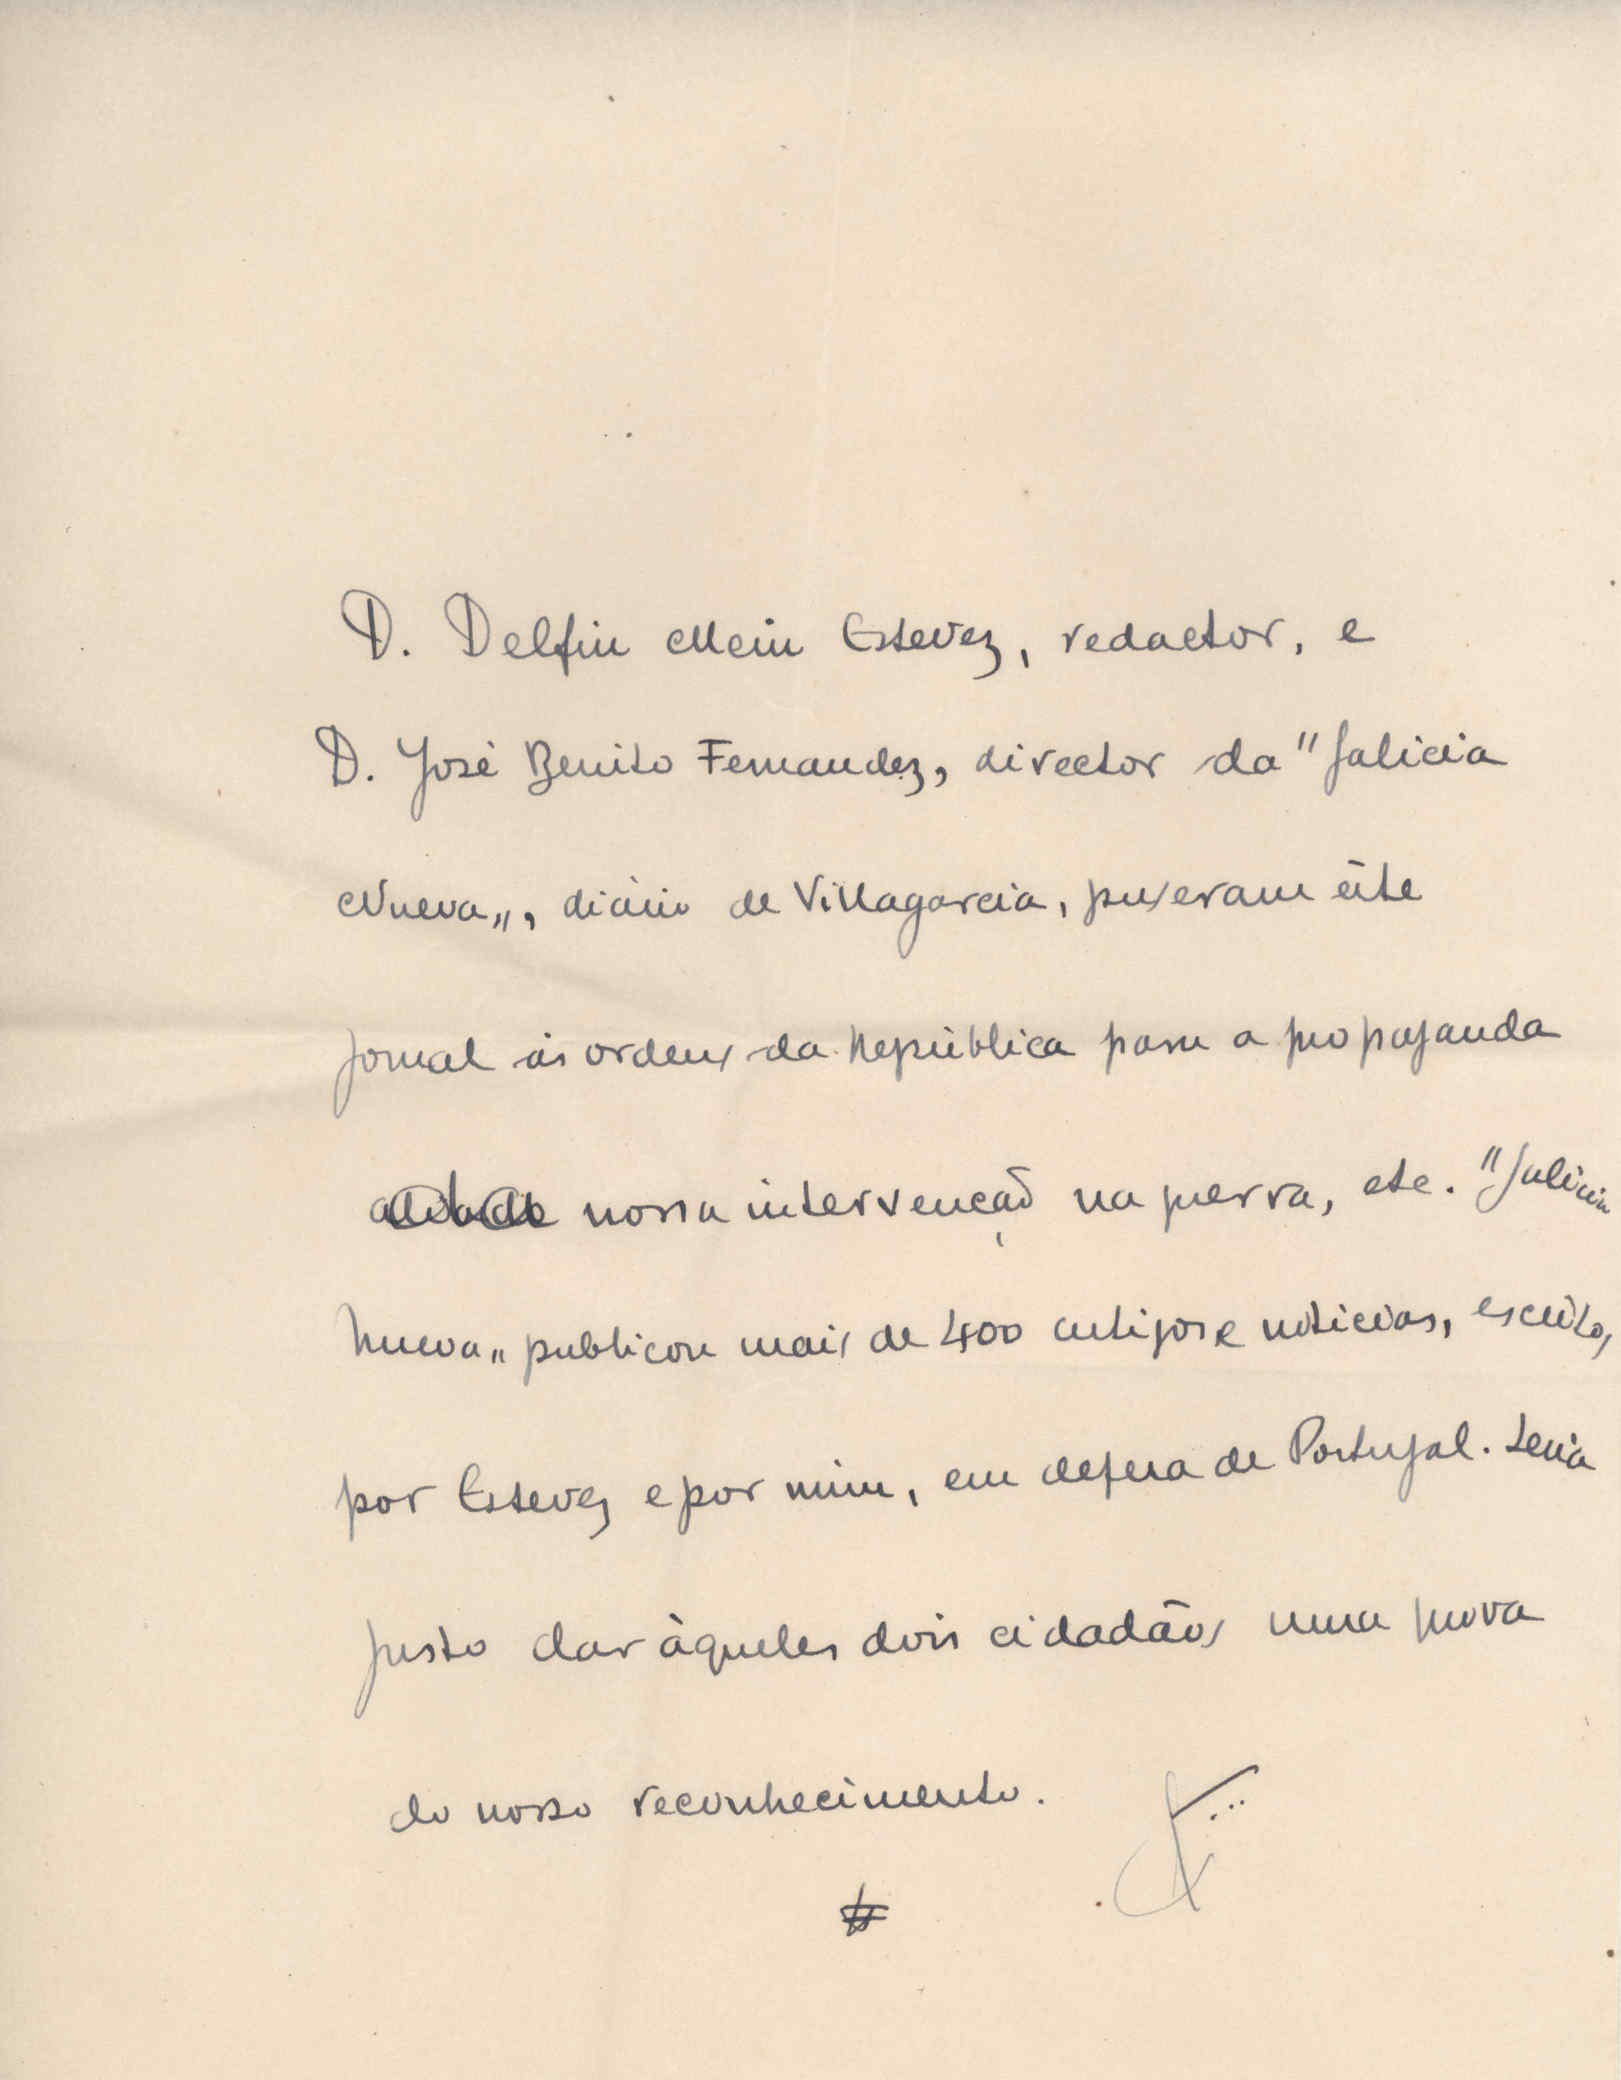 D. Delfin Mein Estevez, redactor, e
D. José Benito Fernandez, director da "Galicia
Nueva", diário de Villagarcia, puseram êste
jornal ás ordens da República para a propaganda
nossa intervenção na guerra, etc. "Galicia
Nueva" publicou mais de 400 artigos e noticias, escritos
por Estevez e por mim, em defesa de Portugal. Seria
justo dar àqueles dois cidadãos uma prova
do nosso reconhecimento.